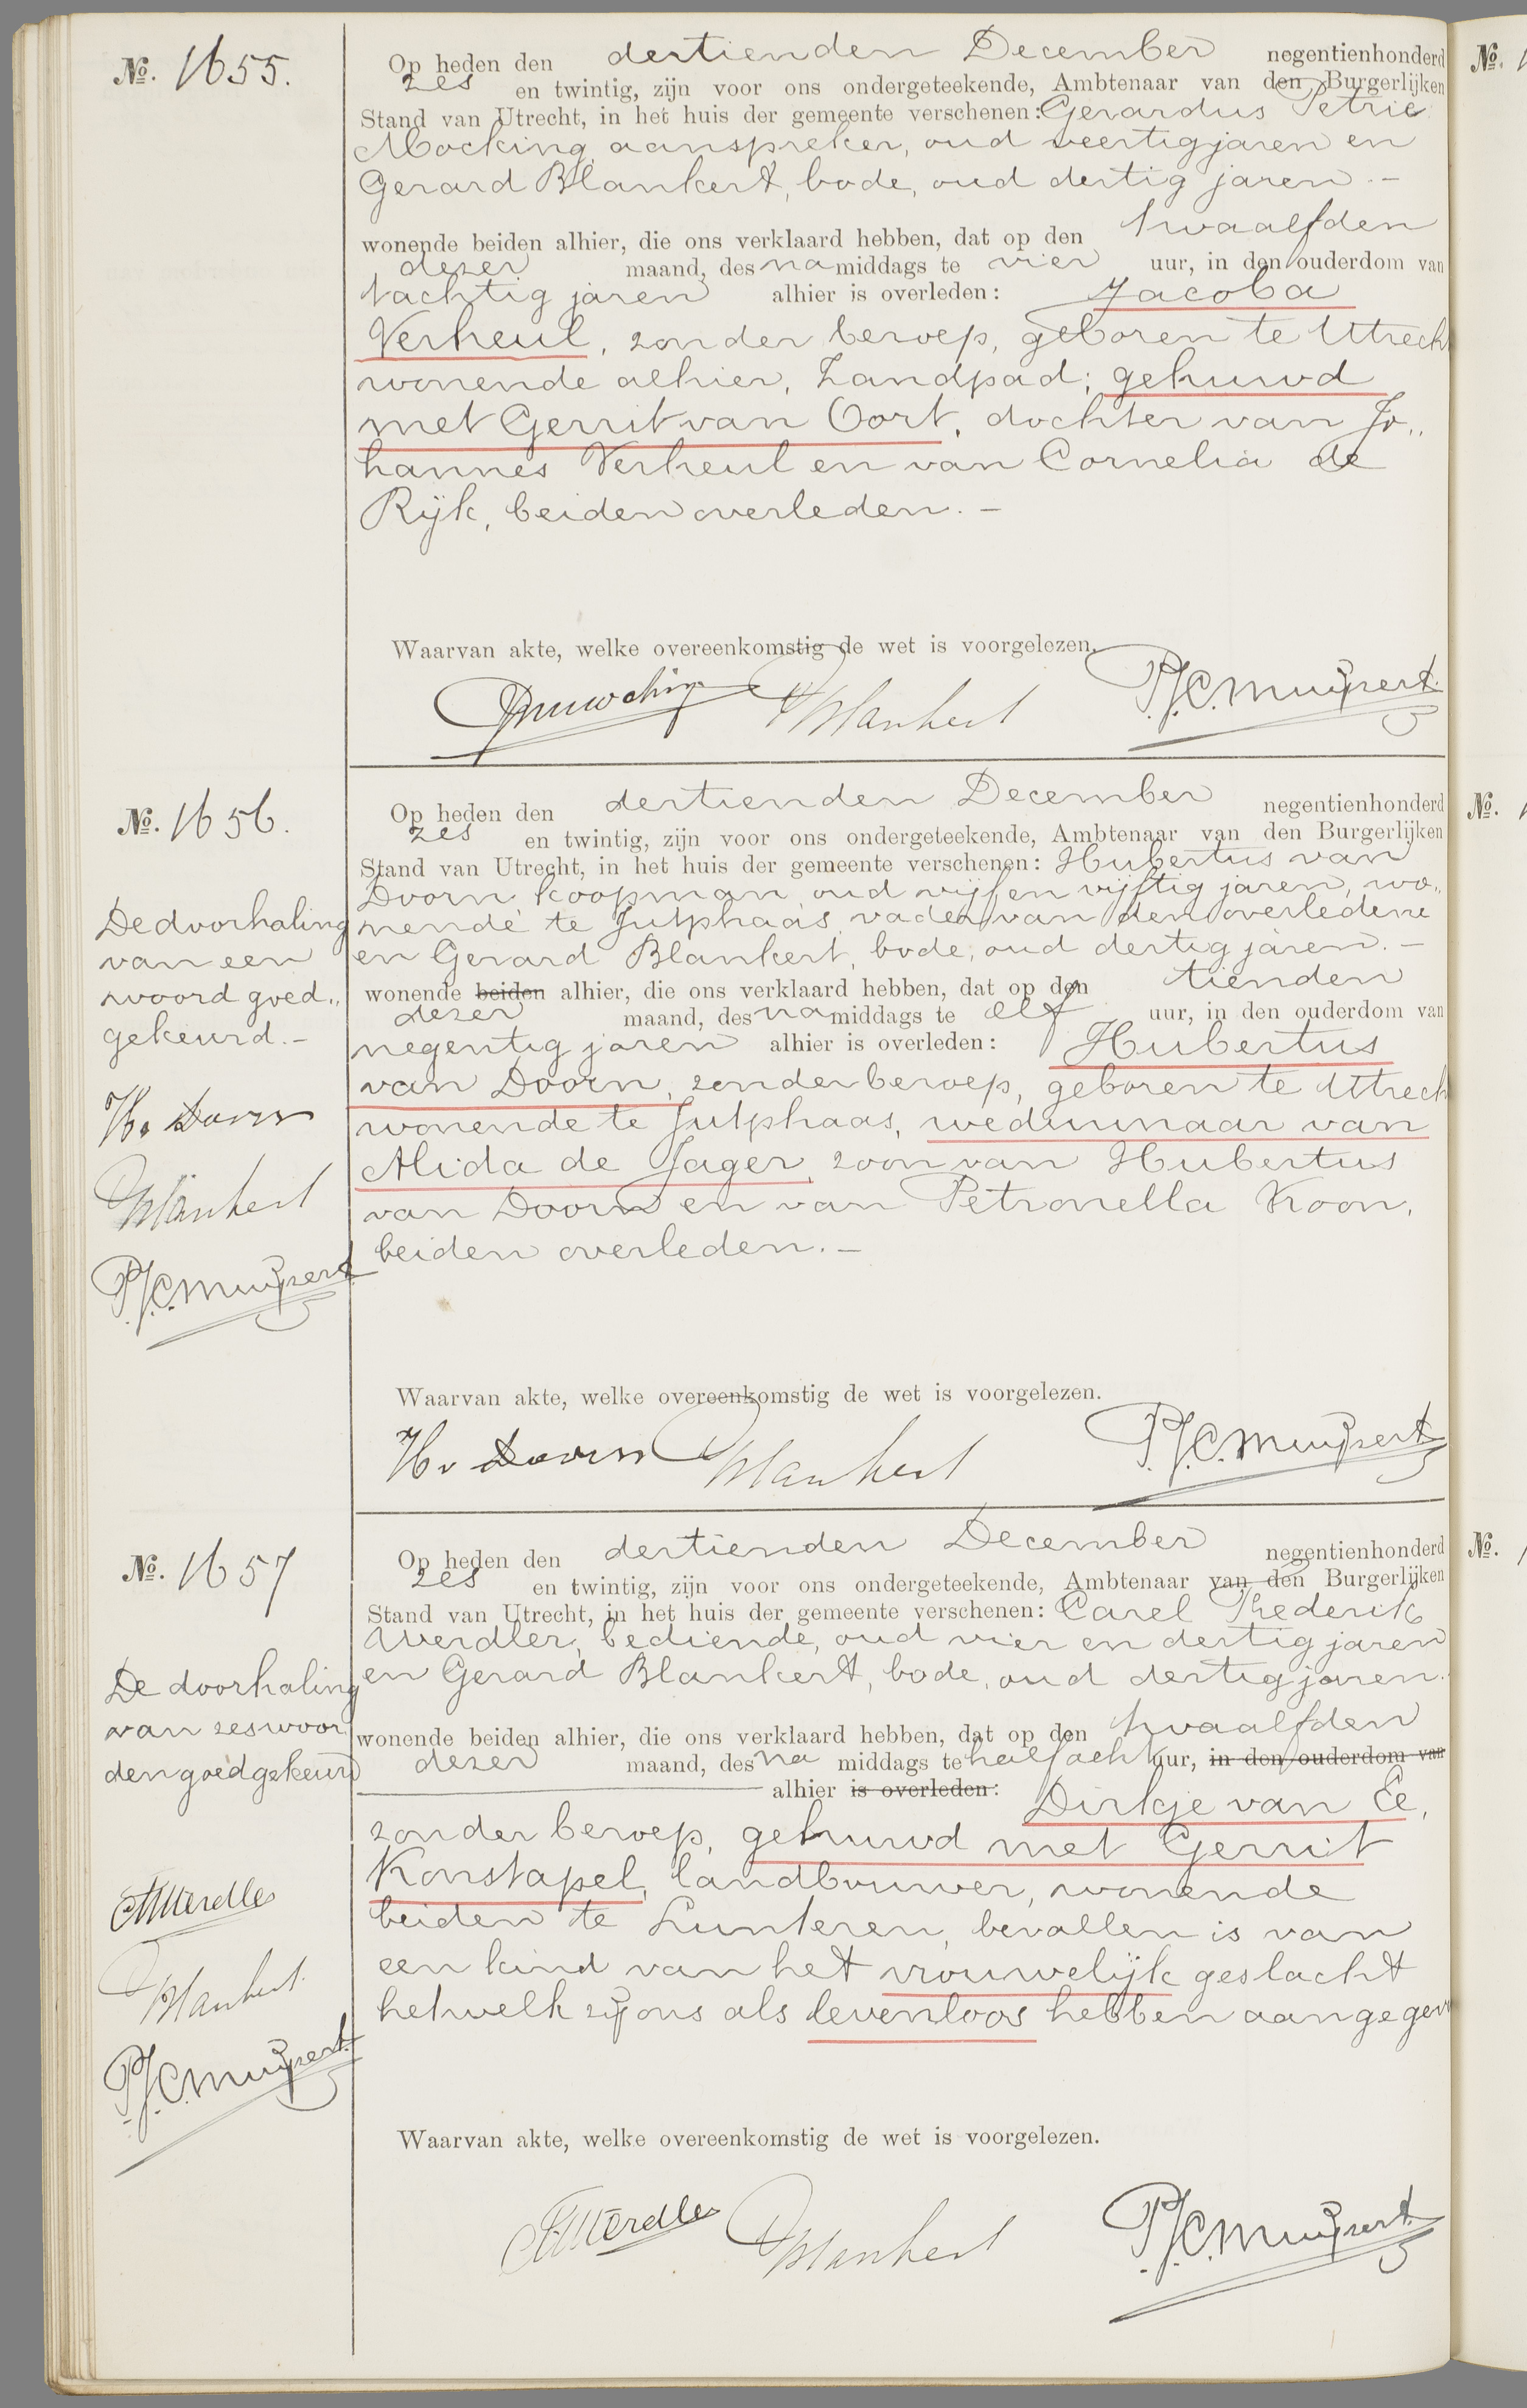 No. 1655.
Op heden den dertienden December negentienhonderd
zes en twintig, zijn voor ons ondergeteekende, Ambtenaar van den Burgerlijken
Stand van Utrecht, in het huis der gemeente verschenen: Gerardus Petrie
Mocking, aanspreker, oud veertig jaren en
Gerard Blankert, bode, oud dertig jaren. -
wonende beiden alhier, die ons verklaard hebben, dat op den twaalfden
dezer maand, des namiddags te vier uur, in den ouderdom van
tachtig jaren alhier is overleden: Jacoba
Verheul, zonder beroep, geboren te Utrech
wonende alhier, Zandpad; gehuwd
met Gerrit van Oort, dochter van Jo„
hannes Verheul en van Cornelia de
Rijk, beiden overleden. -
Waarvan akte, welke overeenkomstig de wet is voorgelezen.
Blankert P.J.C. Muijsert
No. 1656.
Op heden den dertienden December negentienhonderd
zes en twintig, zijn voor ons ondergeteekende, Ambtenaar van den Burgerlijken
Stand van Utrecht, in het huis der gemeente verschenen: Hubertus van
Doorn, koopman, oud vijf en vijftig jaren, wo„
nende te Jutphaas, vader van den overledene
en Gerard Blankert, bode, oud dertig jaren. -
wonende beiden alhier, die ons verklaard hebben, dat op den tienden
dezer maand, des namiddags te elf uur, in den ouderdom van
negentig jaren alhier is overleden: Hubertus
van Doorn, zonder beroep, geboren te Utrech
wonende te Jutphaas, weduwnaar van
Alida de Jager, zoon van Hubertus
van Doorn en van Petronella Koon,
beiden overleden. -
De doorhaling
van een
woord goed„
gekeurd. -
H v Doorn
Blankert
P.J.C. Muijsert
Waarvan akte, welke overeenkomstig de wet is voorgelezen.
H v Doorn Blankert P.J.C. Muijsert
No. 1657
Op heden den dertienden December negentienhonderd
zes en twintig, zijn voor ons ondergeteekende, Ambtenaar van den Burgerlijken
Stand van Utrecht, in het huis der gemeente verschenen: Carel Frederik
Werdler, bediende, oud vier en dertig jaren
en Gerard Blankert, bode, oud dertig jaren.
wonende beiden alhier, die ons verklaard hebben, dat op den twaalfden
dezer maand, des na middags te half acht uur, in den ouderdom van
alhier is overleden: Dirkje van Ee,
zonder beroep, gehuwd met Gerrit
Konstapel, landbouwer, wonende
beiden te Lunteren, bevallen is van
een kind van het vrouwelijk geslacht
hetwelk zij ons als levenloos hebben aangegeve
De doorhaling
van zes woor
den goedgekeurd
Werdler
Blankert
P.J.C. Muijsert
Waarvan akte, welke overeenkomstig de wet is voorgelezen.
Werdler Blankert P.J.C. Muijsert
No.
No.
No.